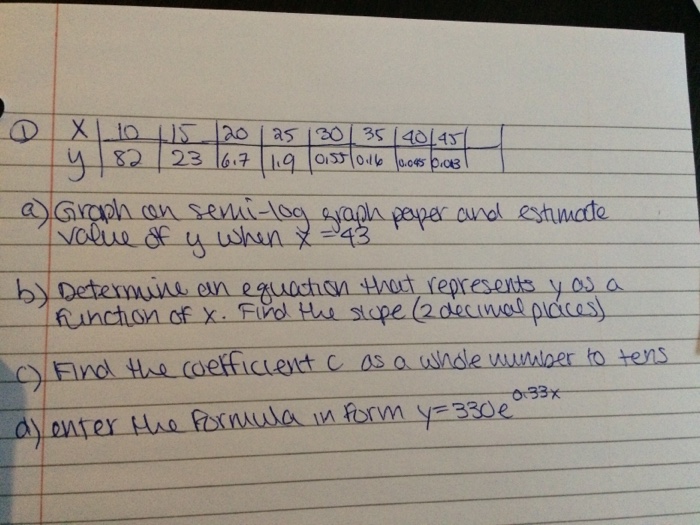 ① X 10 15 20 25 30 35 40 45
y 82 23 6.7 1.9 0.55 0.16 0.045 0.013
a) Graph on semi-log graph paper and estimate
value of y when x = 43
b) Determine an equation that represents y as a
function of x. Find the slope (2 decimal places)
c) Find the coefficient c as a whole number to tens
d) enter the formula in form y=330e^0.33x